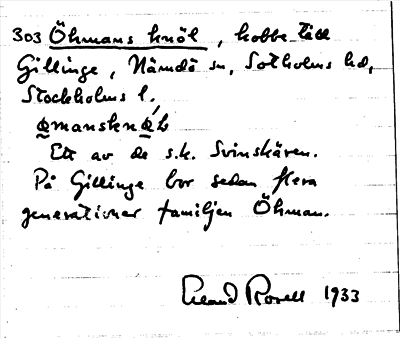 303 Öhmans knöl, kobbe till
Gillinge, Nämdö sn, Sotholms hd,
Stockholms l.
Ett av de s.k. Svinskären.
På Gillinge bor sedan flera
generationer familjen Öhman.
Erland Rosell 1933